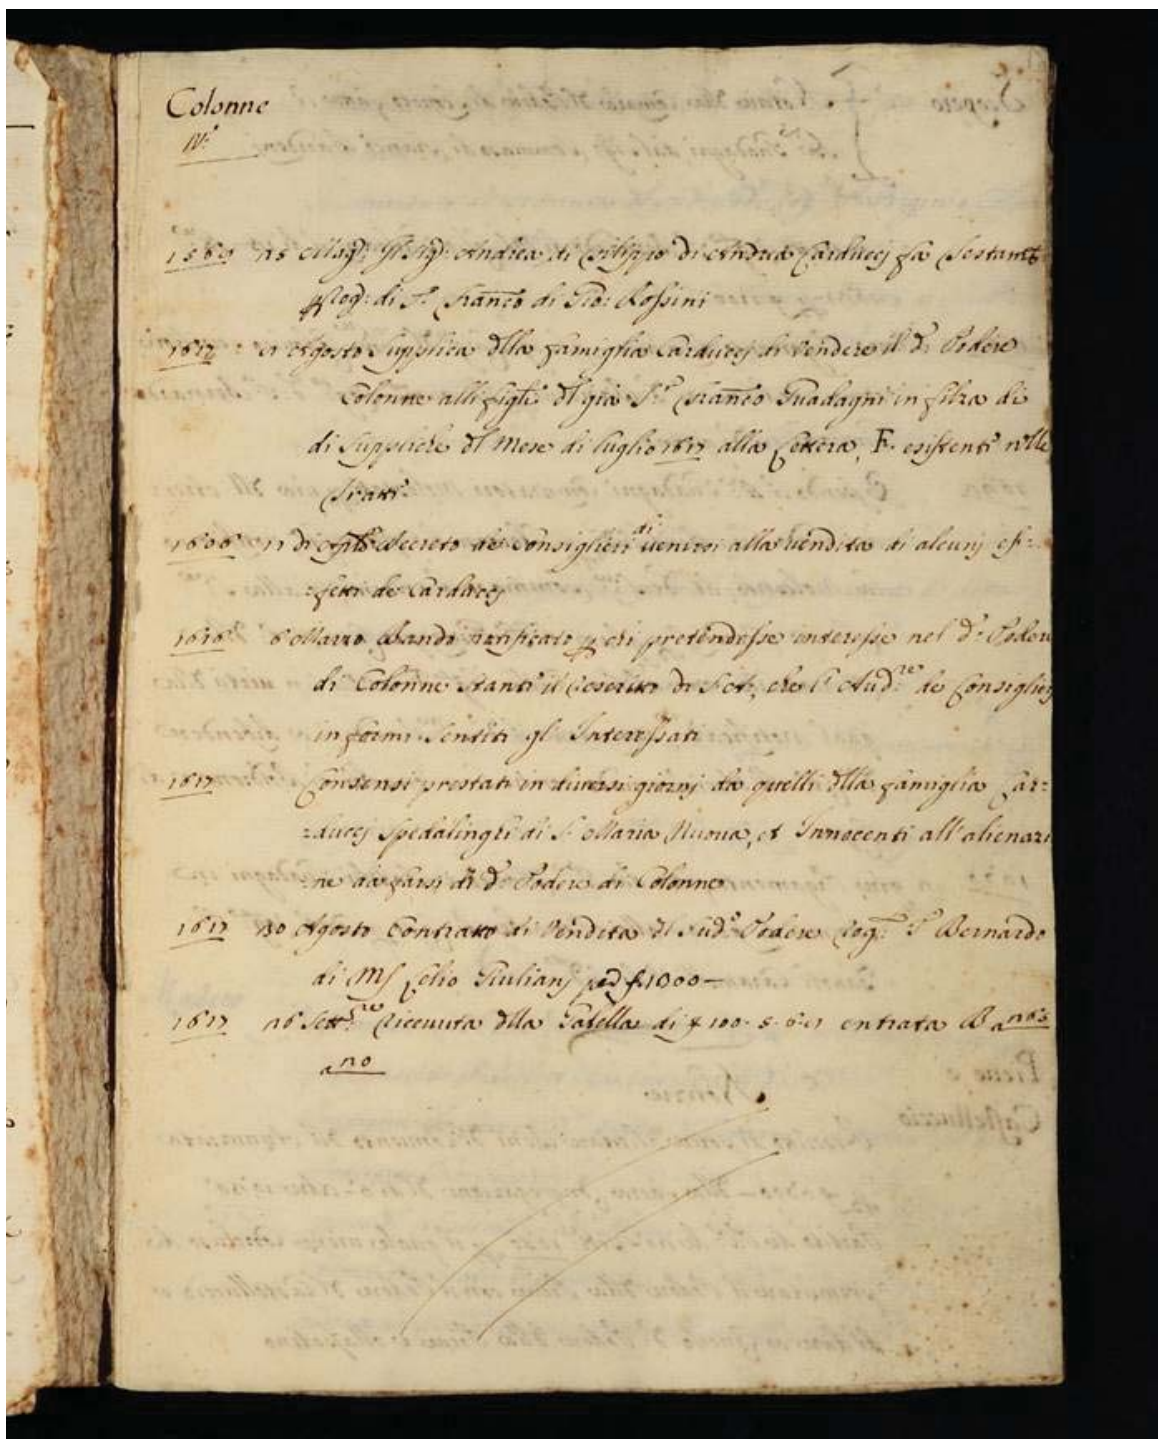 Colonne
N.
1569 15 Magg: Il Sig: Andrea di Filippo di Andrea Carducci fa Testamto
Rog: di Sr Franco di Gio: Rossini
1617 21 Agosto Supplica della famiglia Carducci di Vendere il do Podere
Colonne alli figli del già Sr Franco Guadagni in filza di
di Suppliche del Mese di luglio 1617 alla Lettera, F. esistenti nelle
Tratte
1606 11 di Aple decreto de Consiglieri di venirsi alla vendita di alcuni ef:
:fetti de Carducci
1616 6 Marzo Bando notificato p chi pretendesse interesse nel do Podere
di Colonne stante il Rescritto di S: A:, che l'Audre de Consiglieri
informi Sentiti gl' Interessati
1617 Consensi prestati in diversi giorni da quelli della famiglia Car:
:ducci Spedalinghi di S. Maria Nuova, et Innocenti all'alienazi
:ne da farsi di do Podere di Colonne
1617 30 Agosto Contratto di Vendita del Sudo Podere Rog: Sr Bernardo
di Ms Celio Giuliani
1617 16 Settre Ricevuta della Gabella di 100. 5. 6. entrata B a 165
a 10